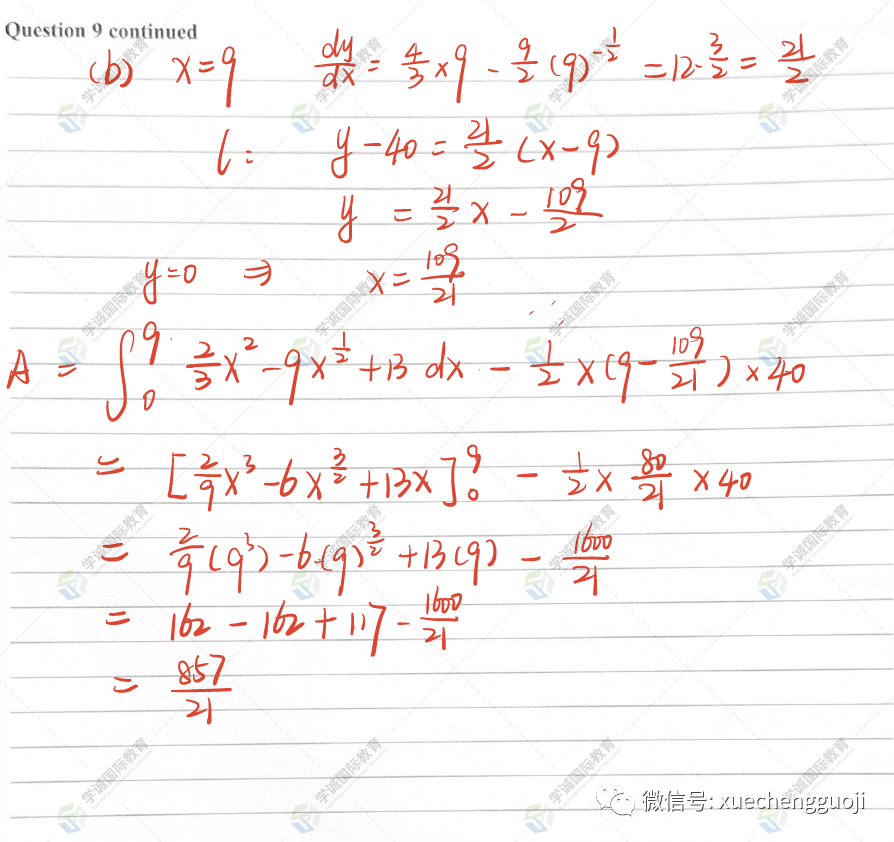 Question 9 continued
(b) x=9 dy/dx = 4/3 ×9 - 9/2 (9)^-1/2 =12-3/2 = 21/2
l: y-40 = 21/2 (x-9)
y = 21/2 x - 109/2
y=0 ⇒ x = 109/21
A = ∫₀⁹ 2/3 x² - 9x^1/2 + 13 dx - 1/2 × (9 - 109/21) × 40
= [2/9 x³ - 6x^3/2 + 13x]₀⁹ - 1/2 × 80/21 × 40
= 2/9 (9³) - 6·(9)^3/2 + 13(9) - 1600/21
= 162 - 162 + 117 - 1600/21
= 857/21
微信号: xuechengguoji
学诚国际教育